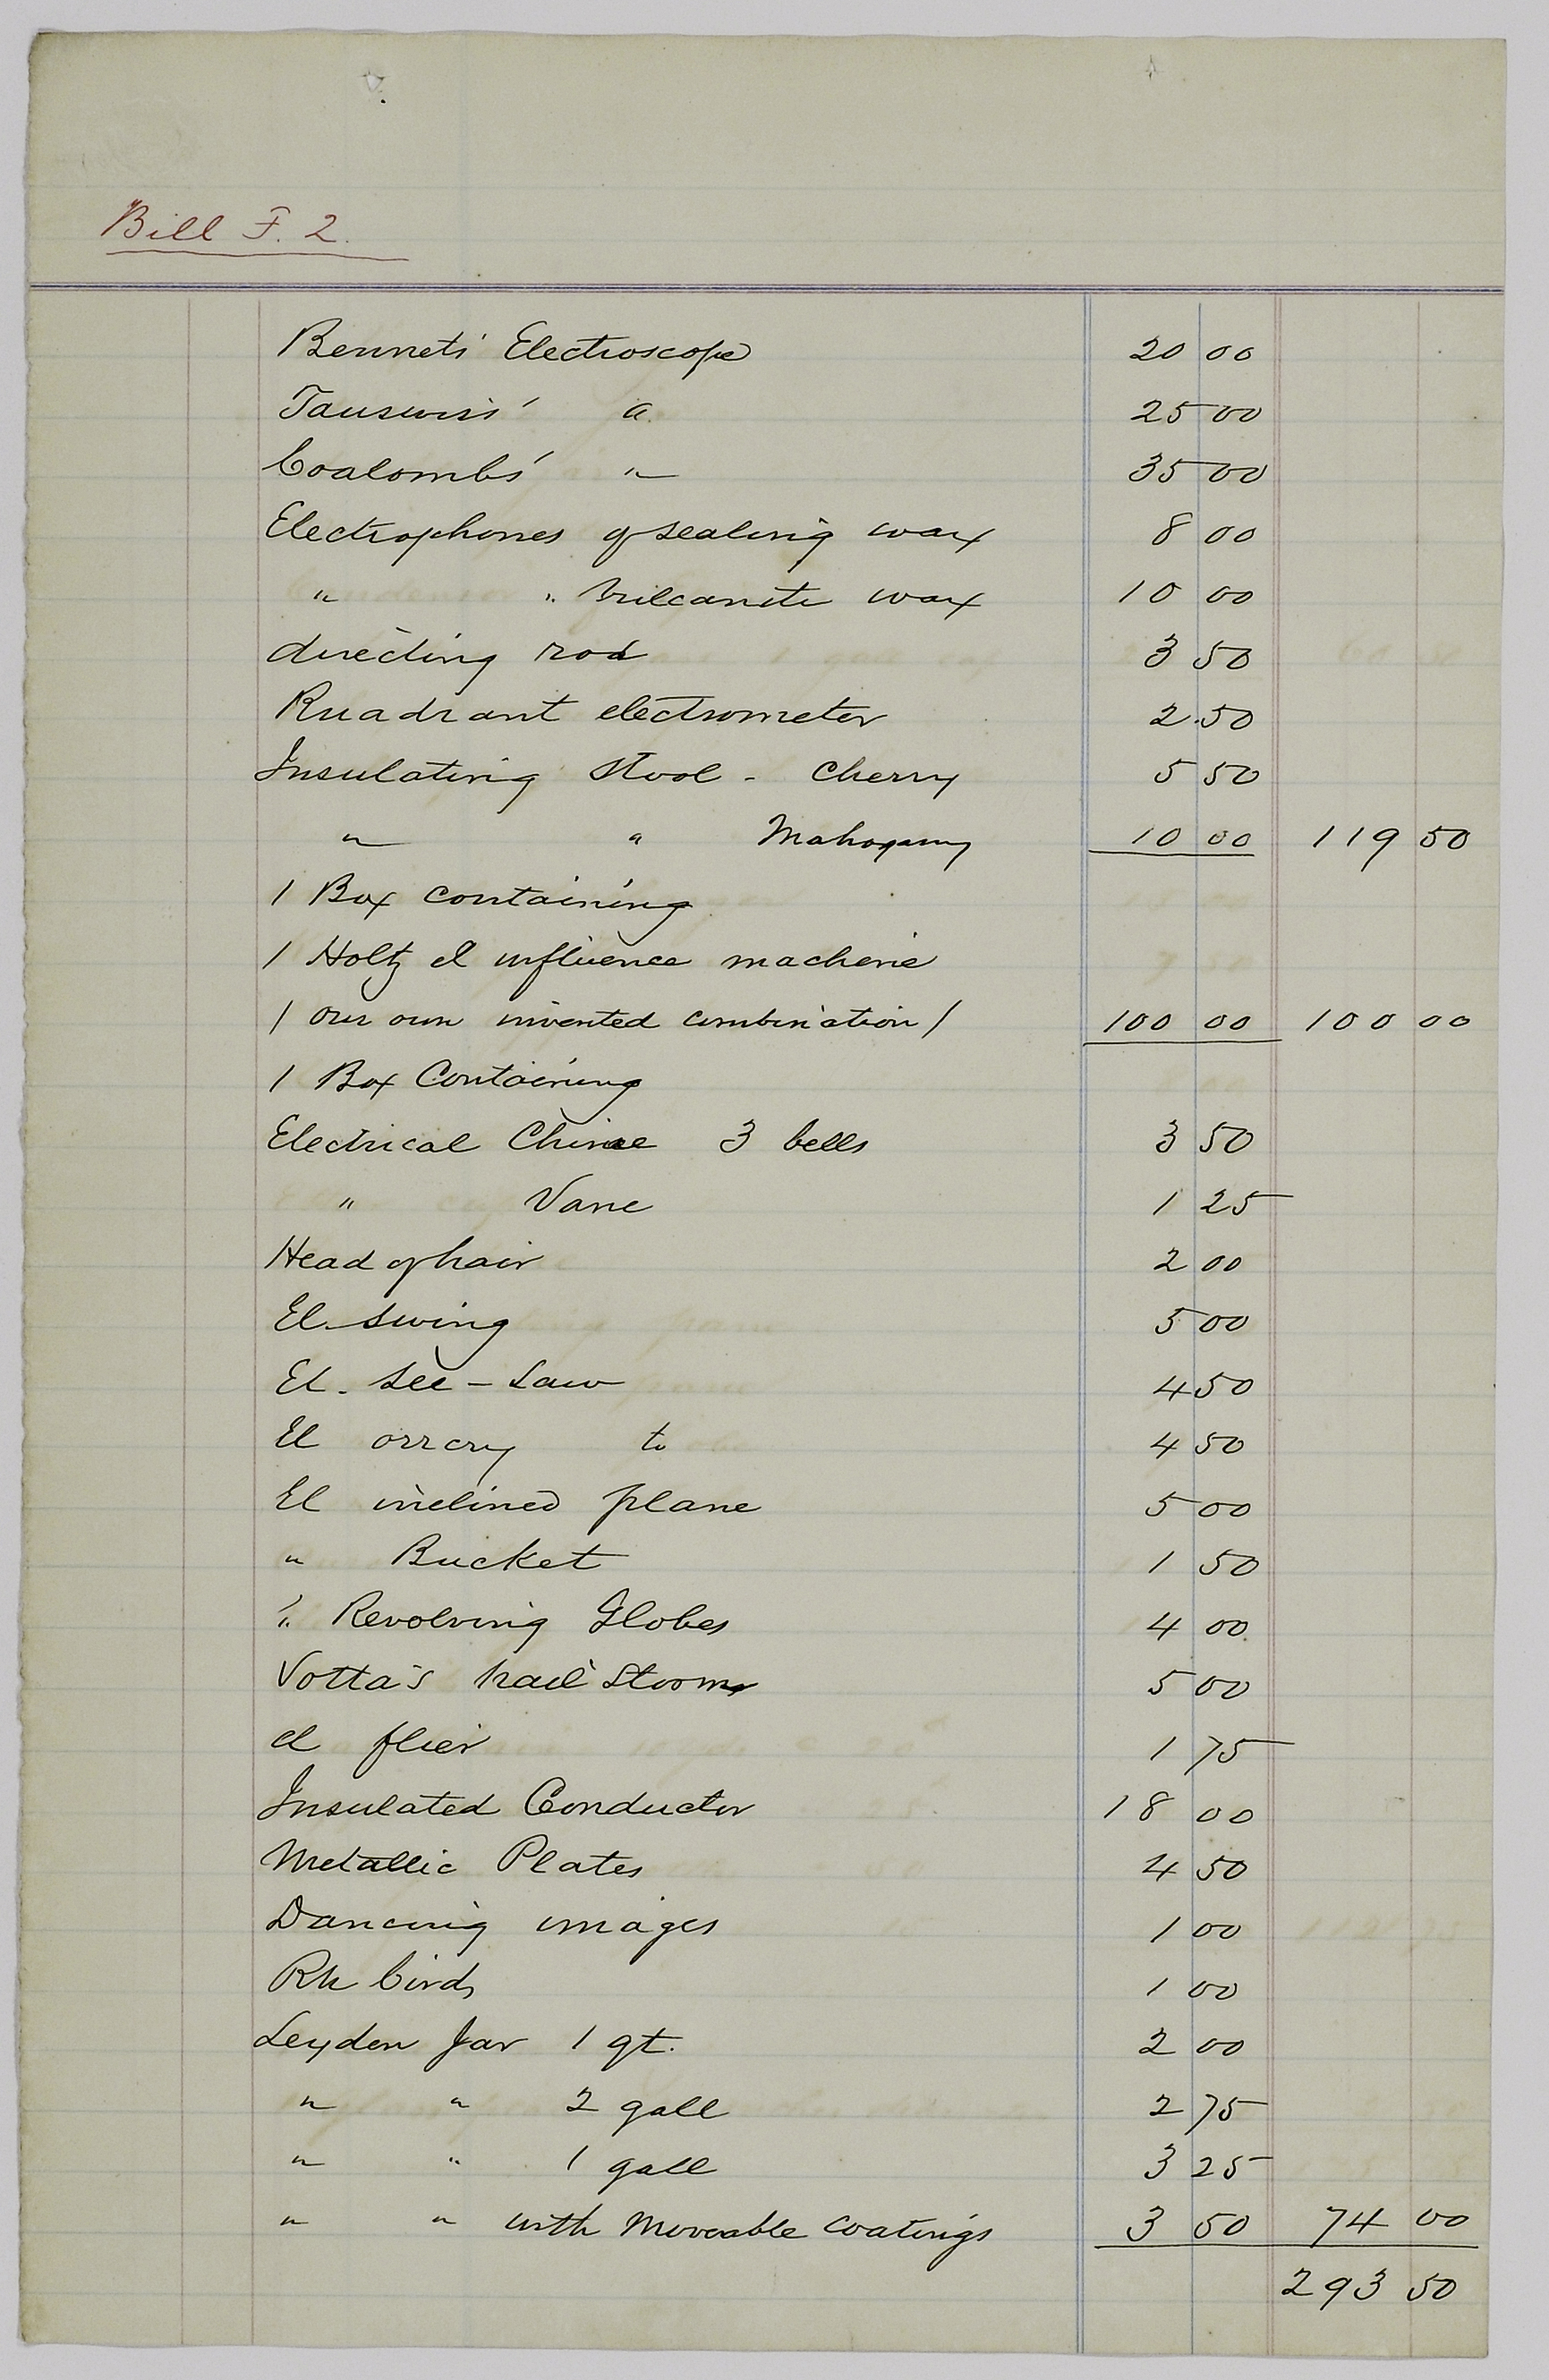 Bill F. 2.
Bennets' Electroscope 20 00
" 25 00
Coalombs' " 35 00
Electrophones of sealing wax 8 00
" " vulcanite wax 10 00
directing rod 3 50
Quadrant electrometer 2.50
Insulating Stool - Cherry 5 50
" " Mahogany 10 00 119 50
1 Box containing
1 Holtz el influence machine
/ our own invented combination / 100 00 100 00
1 Box Containing
Electrical Chime 3 bells 3 50
" Vane 1 25
Head of hair 2 00
El. Swing 5 00
El. See - Saw 4 50
El orrery 4 50
El inclined plane 5 00
" Bucket 1 50
" Revolving Globes 4 00
Votta's hail Storm 5 00
el flier 1 75
Insulated Conductor 18 00
Metallic Plates 4 50
Dancing images 1 00
birds 1 00
Leyden Jar 1 qt. 2 00
" " 2 gall 2 75
" " 1 gall 3 25
" " with Moveable coatings 3 50 74 00
293 50